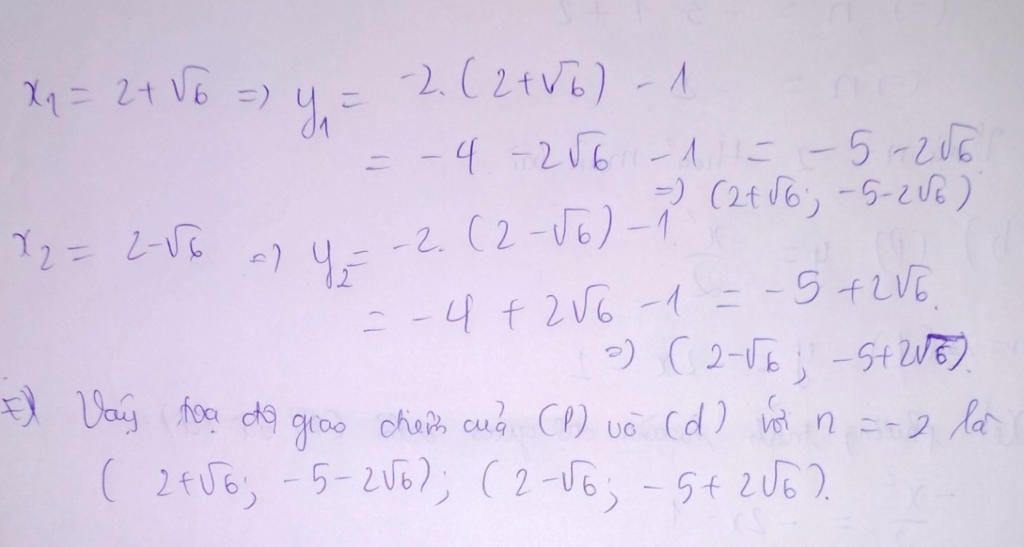 x₁ = 2+√6 => y₁ = -2.(2+√6) - 1
= -4 -2√6 -1 = -5 -2√6
=> (2+√6; -5-2√6)
x₂ = 2-√6 => y₂ = -2.(2-√6) -1
= -4 + 2√6 -1 = -5 +2√6.
=> (2-√6; -5+2√6).
Vậy tọa độ giao điểm của (P) và (d) với n = -2 là
(2+√6; -5-2√6); (2-√6; -5+2√6).